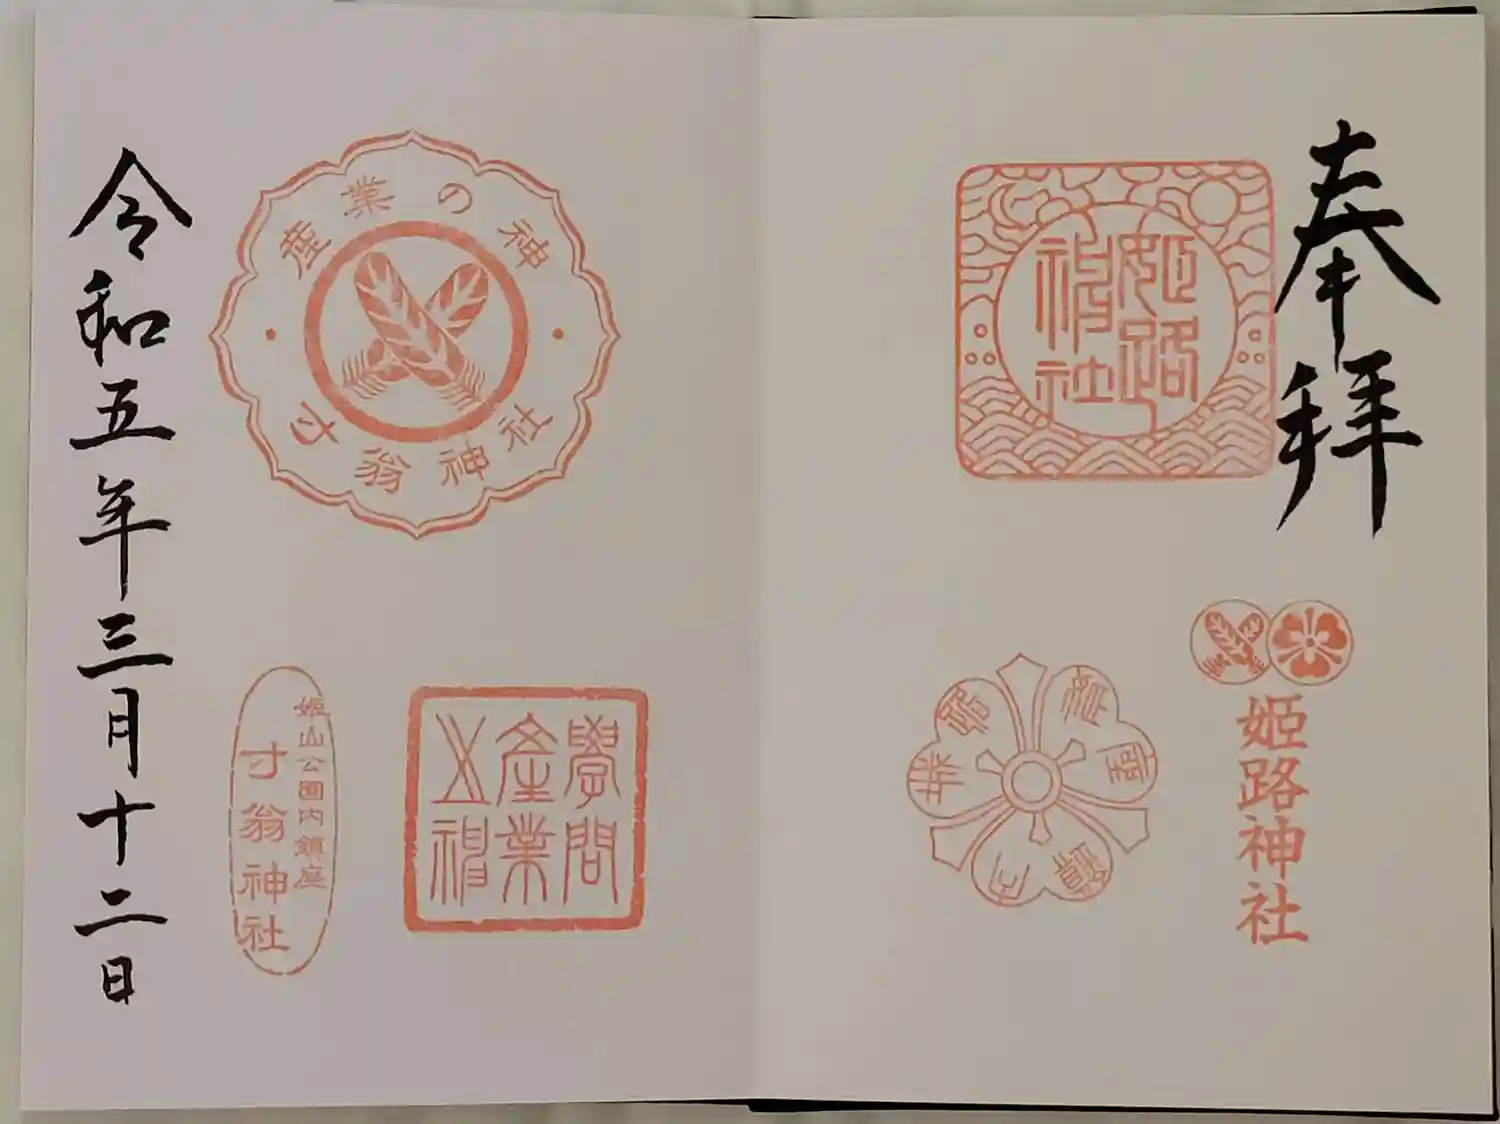 奉拝
姫路
神社
姫路神社
産業の神
寸翁神社
學問
產業
之神
姫山公園内鎮座
寸翁神社
令和五年三月十二日